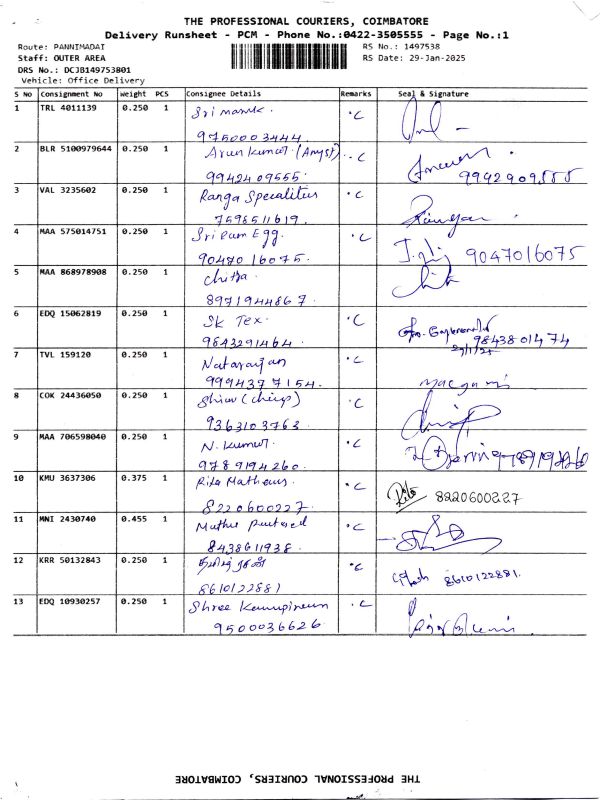 THE PROFESSIONAL COURIERS, COIMBATORE
Delivery Runsheet - PCM - Phone No.:0422-3505555 - Page No.:1
Route: PANNIMADAI RS No.: 1497538
Staff: OUTER AREA RS Date: 29-Jan-2025
DRS No.: DCJB149753801
Vehicle: Office Delivery
S No Consignment No Weight PCS Consignee Details Remarks Seal & Signature
1 TRL 4011139 0.250 1
9750003444
2 BLR 5100979644 0.250 1 Arun Kumar
9942409555 9942909555
3 VAL 3235602 0.250 1 Ranga
7598511619
4 MAA 575014751 0.250 1 Egg
9047016075 9047016075
5 MAA 868978908 0.250 1 Chitra
8971944867
6 EDQ 15062819 0.250 1 SK Tex
9843291464 9843801474
7 TVL 159120 0.250 1 Natarajan
9994377154
8 COK 24436050 0.250 1
9363103763
9 MAA 706598040 0.250 1 N. Kumar
9789194260
10 KMU 3637306 0.375 1 Rita Mathews
8220600227 8220600227
11 MNI 2430740 0.455 1
8438611938
12 KRR 50132843 0.250 1
8610122881 8610122881
13 EDQ 10930257 0.250 1 Shree
9500036626
THE PROFESSIONAL COURIERS, COIMBATORE